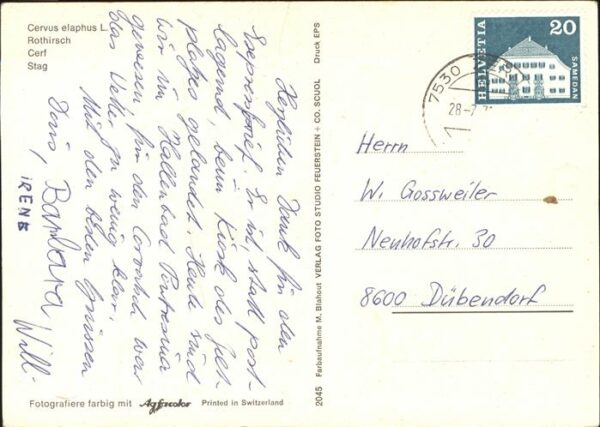 Cervus elaphus L.
Rothirsch
Cerf
Stag
Herzlichen Dank für den
Expressbrief. Er ist, statt post-
lagernd, beim Kiosk des Zelt-
platzes gelandet. Heute sind
wir im Hallenbad Pontresina
gewesen, für den Corvatsch war
das Wetter zu wenig klar.
Mit den besten Grüssen
Doris, Barbara Willi.
IRENE
Fotografiere farbig mit Agfacolor Printed in Switzerland
2045 Farbaufnahme M. Blahout VERLAG FOTO STUDIO FEUERSTEIN + CO. SCUOL Druck EPS
HELVETIA
20
SAMEDAN
7530
28-7
Herrn
W. Gossweiler
Neuhofstr. 30
8600 Dübendorf